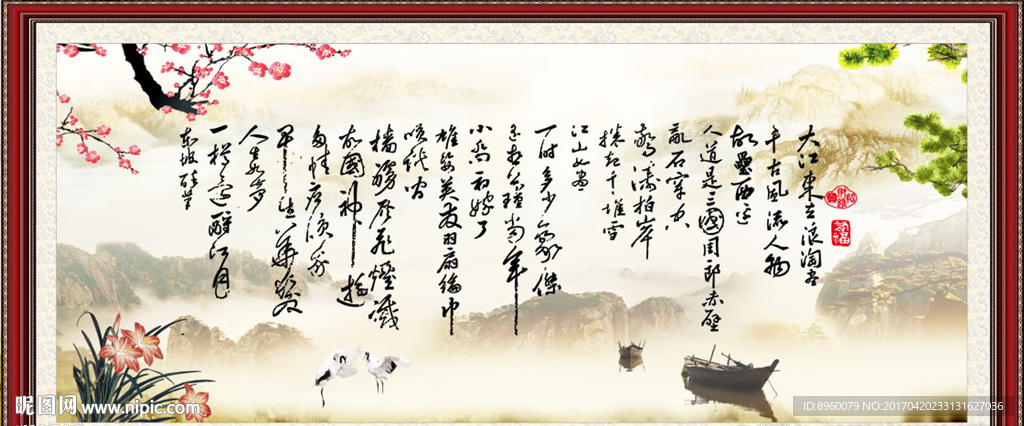 大江東去浪淘盡
千古風流人物
故壘西邊
人道是三國周郎赤壁
亂石穿空
驚濤拍岸
捲起千堆雪
江山如畫
一時多少豪傑
遙想公瑾當年
小喬初嫁了
雄姿英發羽扇綸巾
談笑間
檣櫓灰飛煙滅
故國神遊
多情應笑我
早生華髮
人生如夢
一樽還酹江月
東坡醉筆
昵图网 www.nipic.com
ID:8960079 NO:20170420233131627036